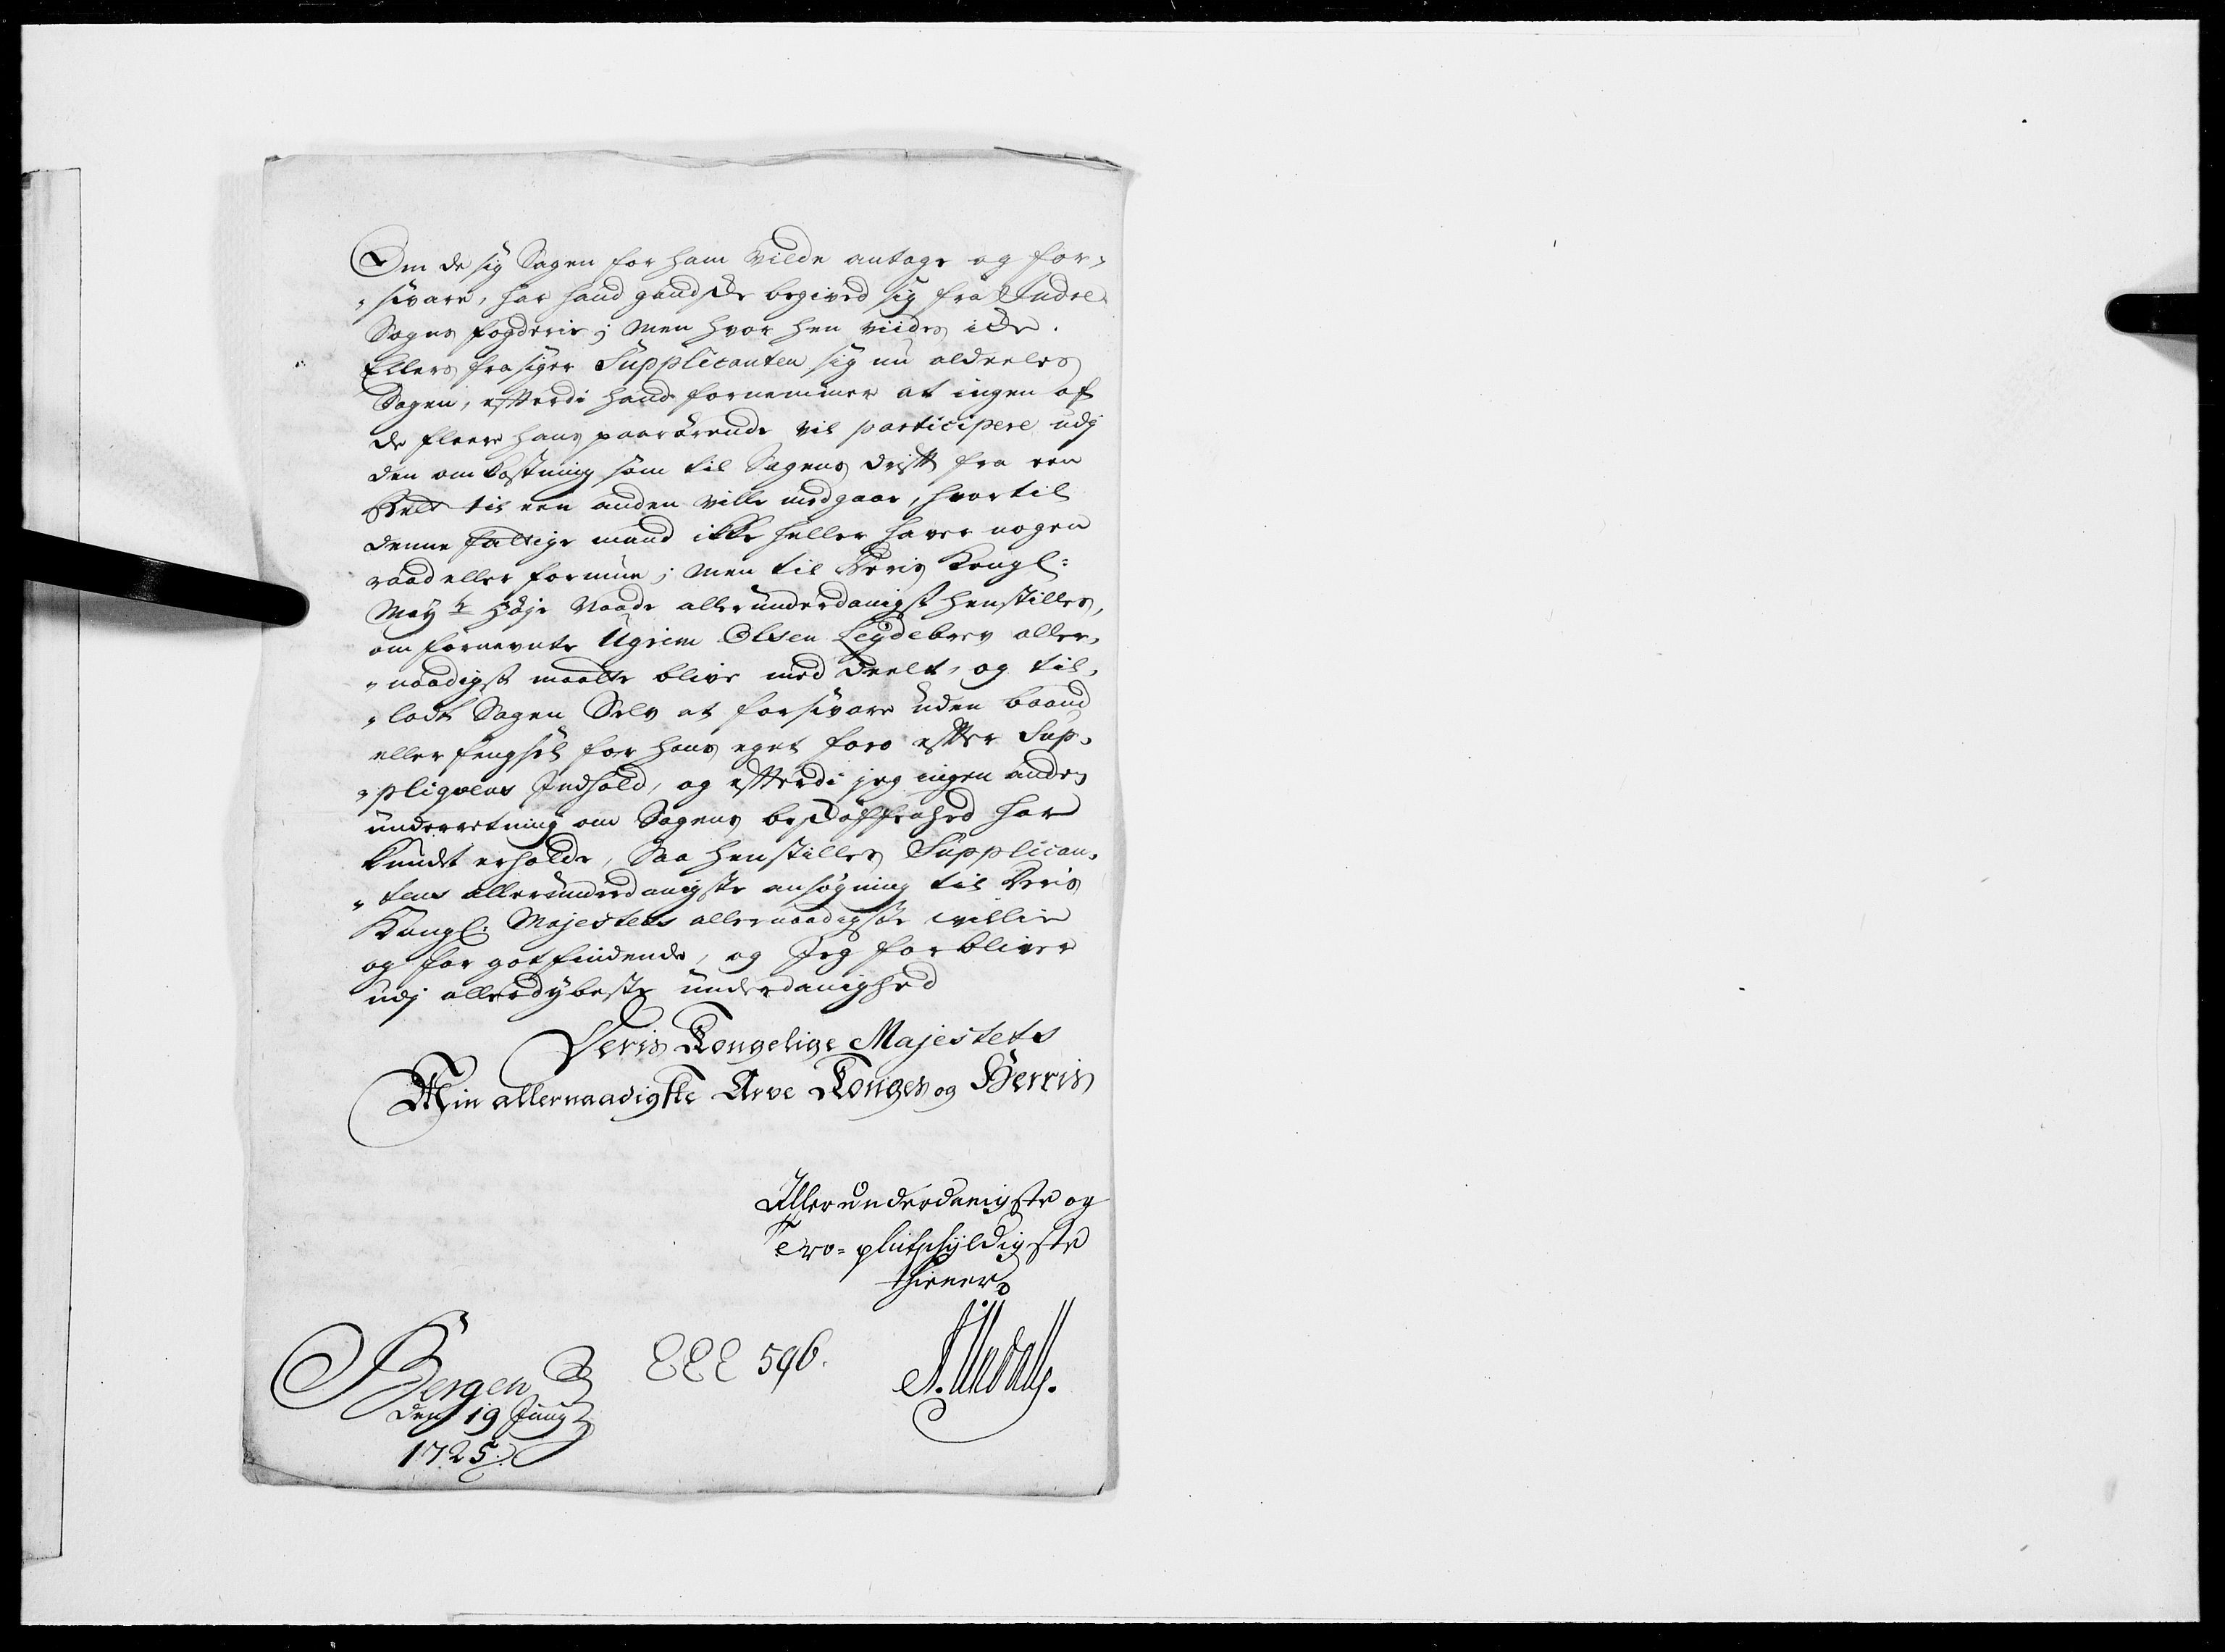 Om de sig Sagen for ham vilde antage og for-
"svare, har hand gandske begived sig fra Indre
Sogns fogderie; Men hvor hen viides icke.
Ellers frasiger Supplicanten sig nu aldeeles
Sagen, efterdi hand fornemmer at ingen af
de fleere hans paarørende vil participere udj
den omkostning som til Sagens drift fra een
Rett til een anden ville medgaae, hvortil
denne fattige mand ikke heller haver nogen
raad eller formue; Men til Deris Kongl:
Mayts Høje Naade allerunderdanigst henstilles,
om fornevnte Ugrim Olsen Leydebrev aller-
"naadigst maatte blive meddeelt, og til-
"ladt Sagen Selv at forsvare uden baand
eller fengsel for hans eget foro efter Sup-
"pliqvens Indhold, og efterdi jeg ingen anden
underretning om Sagens beskaffenhed har
kundet erholde, Saa henstilles Supplican-
"tens allerunderdanigste ansøgning til Deris
Kongl: Majestets allernaadigste willie
og for got findende, og Jeg forbliver
udj allerdybeste underdanighed
Deris Kongelige Majestets
Min allernaadigste Arve Konges og Herris
Allerunderdanigste og
Troe-plictskyldigste
thienere
Bergen
den 19 Junij
1725.
EEE 596.
A. Undall.